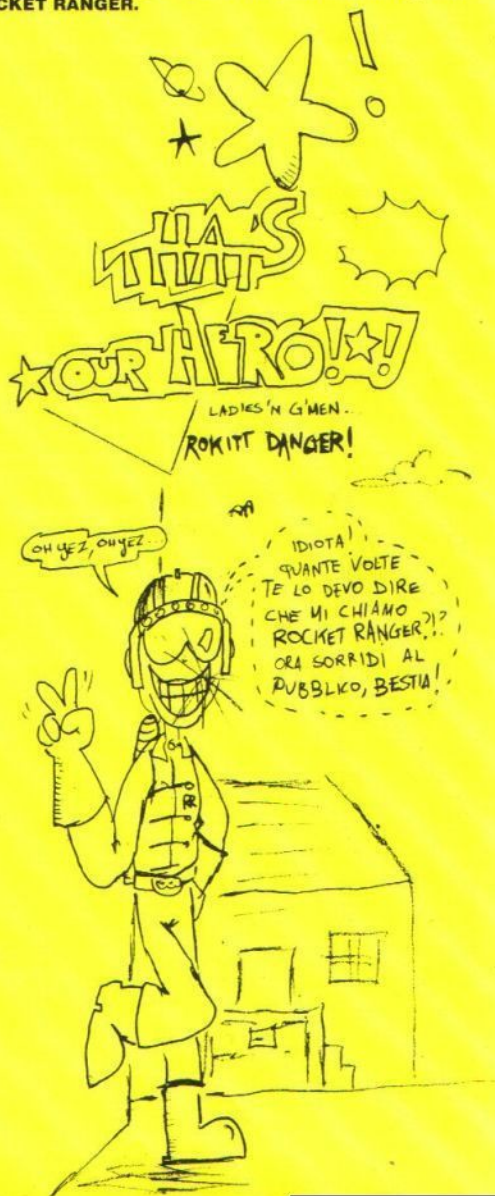 CKET RANGER.
!
THAT'S
OUR HERO!!
LADIES'N G'MEN...
ROKITT DANGER!
OH YEZ, OH YEZ...
IDIOTA!
QUANTE VOLTE
TE LO DEVO DIRE
CHE MI CHIAMO
ROCKET RANGER?!?
ORA SORRIDI AL
PUBBLICO, BESTIA!
RR